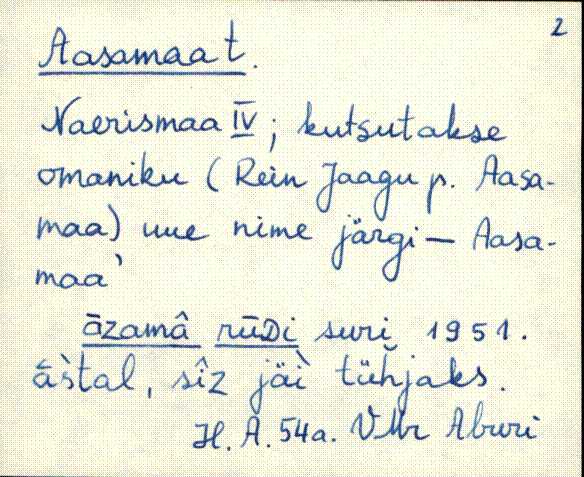 2
Aasamaa t.
Naerismaa IV; kutsutakse
omaniku (Rein Jaagu p. Aasa-
maa) uue nime järgi — Aasa-
maa'
āzamâ rūᴅi suri 1951.
āstal, sîz jäì tühjaks.
H. A. 54a. VMr Aburi